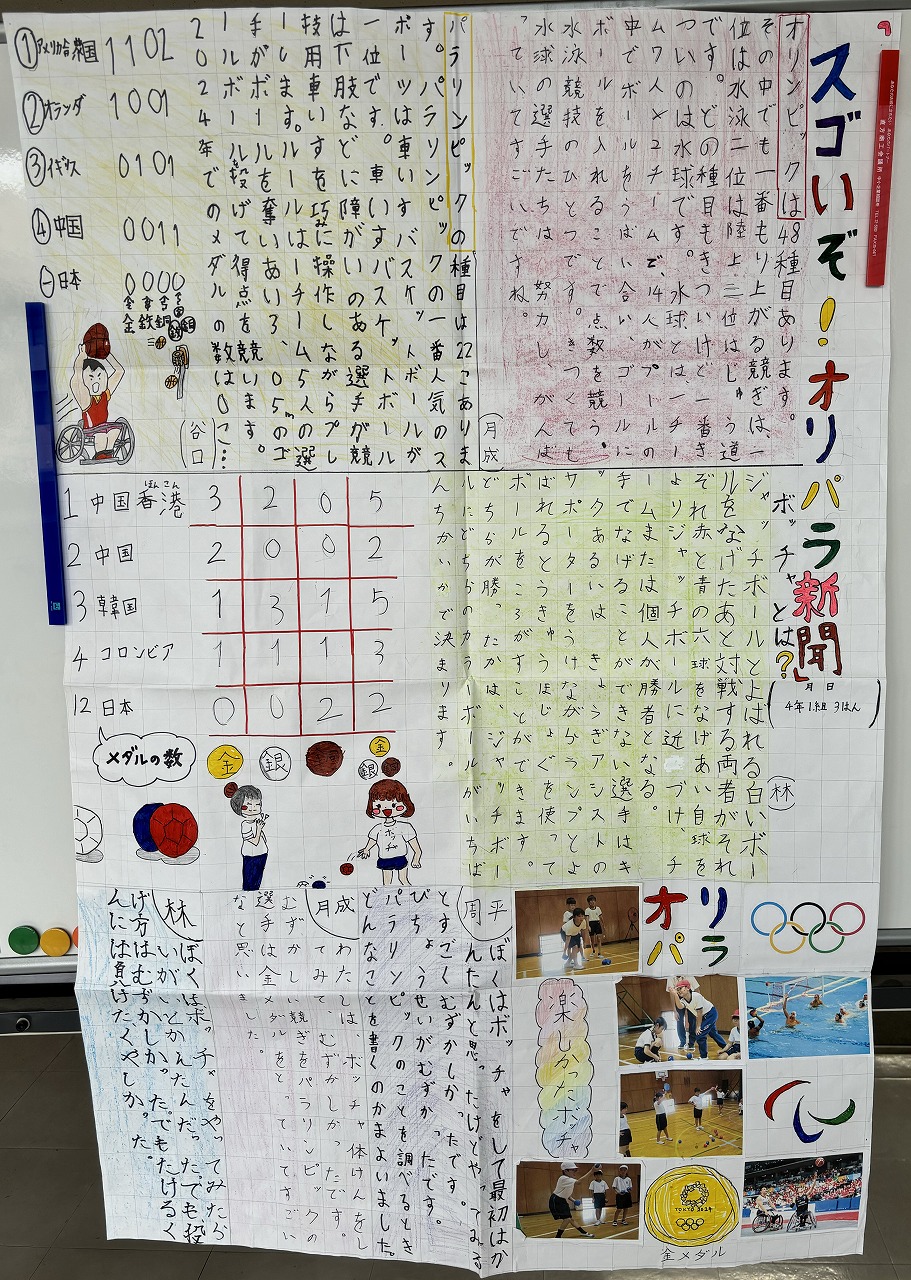 スゴいぞ!オリパラ新聞
月 日
4年1組3はん
オリンピックは48種目あります。
その中でも一番もり上がる競ぎは、一
位は水泳二位は陸上三位はじゅう道
です。どの種目もきついけど一番き
ついのは水球です。水球とは、一チー
ム7人×2チームで、14人がプールの
中でボールをうばい合い、ゴールに
ボールを入れることで点数を競う
水泳競技のひとつです。きつくても
水球の選手たちは努力し、がんば
っていてすごいですね。
月成
パラリンピックの種目は22こありま
す。パラリンピックの一番人気のス
ポーツは車いすバスケットボールが
一位です。車いすバスケットボール
は下肢などに障がいのある選手が競
技用車いすを巧みに操作しながらプレ
ーします。ルールは一チーム5人の選
手がボールを奪いあい、3.05mのゴ
ールボール投げて得点を競います。
2024年でのメダルの数は0こ…
谷口
①アメリカ合衆国 1102
②オランダ 1001
③イギリス 0101
④中国 0011
日本 0000
金 銀 銅
ボッチャとは?
林
ジャッチボールとよばれる白いボー
ルをなげたあと対戦する両者がそれ
ぞれ赤と青の六球をなげあい自球を
よりジャッチボールに近づけ、チ
ームまたは個人が勝者となる。
手でなげることができない選手はキ
ックあるいは、きょうぎアシストの
サポーターをうけながらランプとよ
ばれるとうきゅうほじょぐを使って
ボールをころがすことができます。
どちらが勝ったかは、ジャッチボー
ルにどちらのカラーボールがいちば
んちかいかで決まります。
1 中国香港 3 2 0 5
ほんこん
2 中国 2 0 0 2
3 韓国 1 3 1 5
4 コロンビア 1 1 1 3
12 日本 0 0 2 2
メダルの数
金 銀 金 銀
ボッチャ
オリパラ
楽しかったボッチャ
TOKYO 2024
金メダル
平周
ぼくはボッチャをして最初はか
んたんと思ったけどやってみる
とすごくむずかしかったです。
びちょうせいがむずかったです。
パラリンピックのことを調べるとき
どんなことを書くのかまよいました。
月成
わたしは、ボッチャ体けんをし
てみて、むずかしかったです。
むずかしい競ぎをパラリンピックの
選手は金メダルをとっていてすごい
なと思いました。
林
ぼくはボッチャをやってみたら
いがいとかんたんだった。でも投
げ方はむずかしかった。でもたけるく
んには負けたくやしか。た。